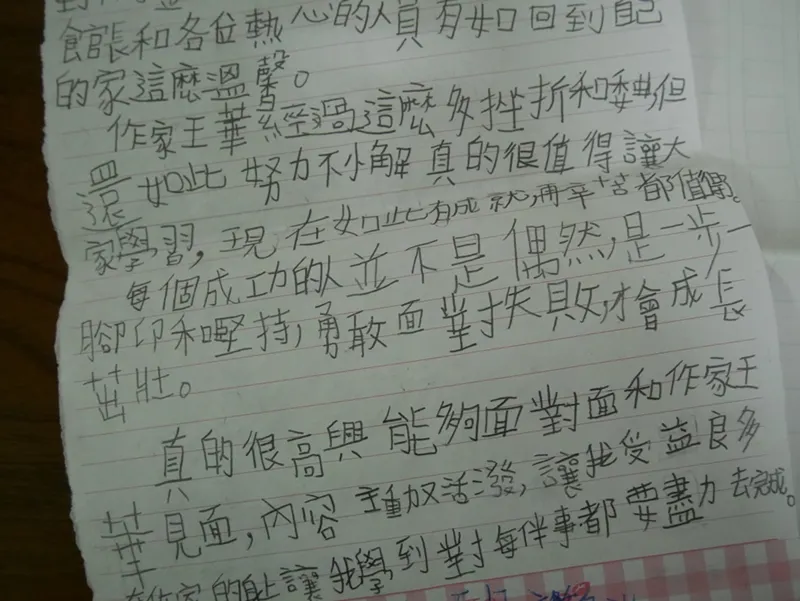 館長和各位熱心的人員有如回到自己
的家這麼溫馨。
作家王華經過這麼多挫折和委曲但
還如此努力不懈真的很值得讓大
家學習,現在如此有成就,再辛苦都值得。
每個成功的人並不是偶然,是一步一
腳印和堅持,勇敢面對失敗,才會成長
茁壯。
真的很高興能夠面對面和作家王
華見面,內容生動活潑,讓我受益良多
作家的身上讓我學到對每件事都要盡力去完成。